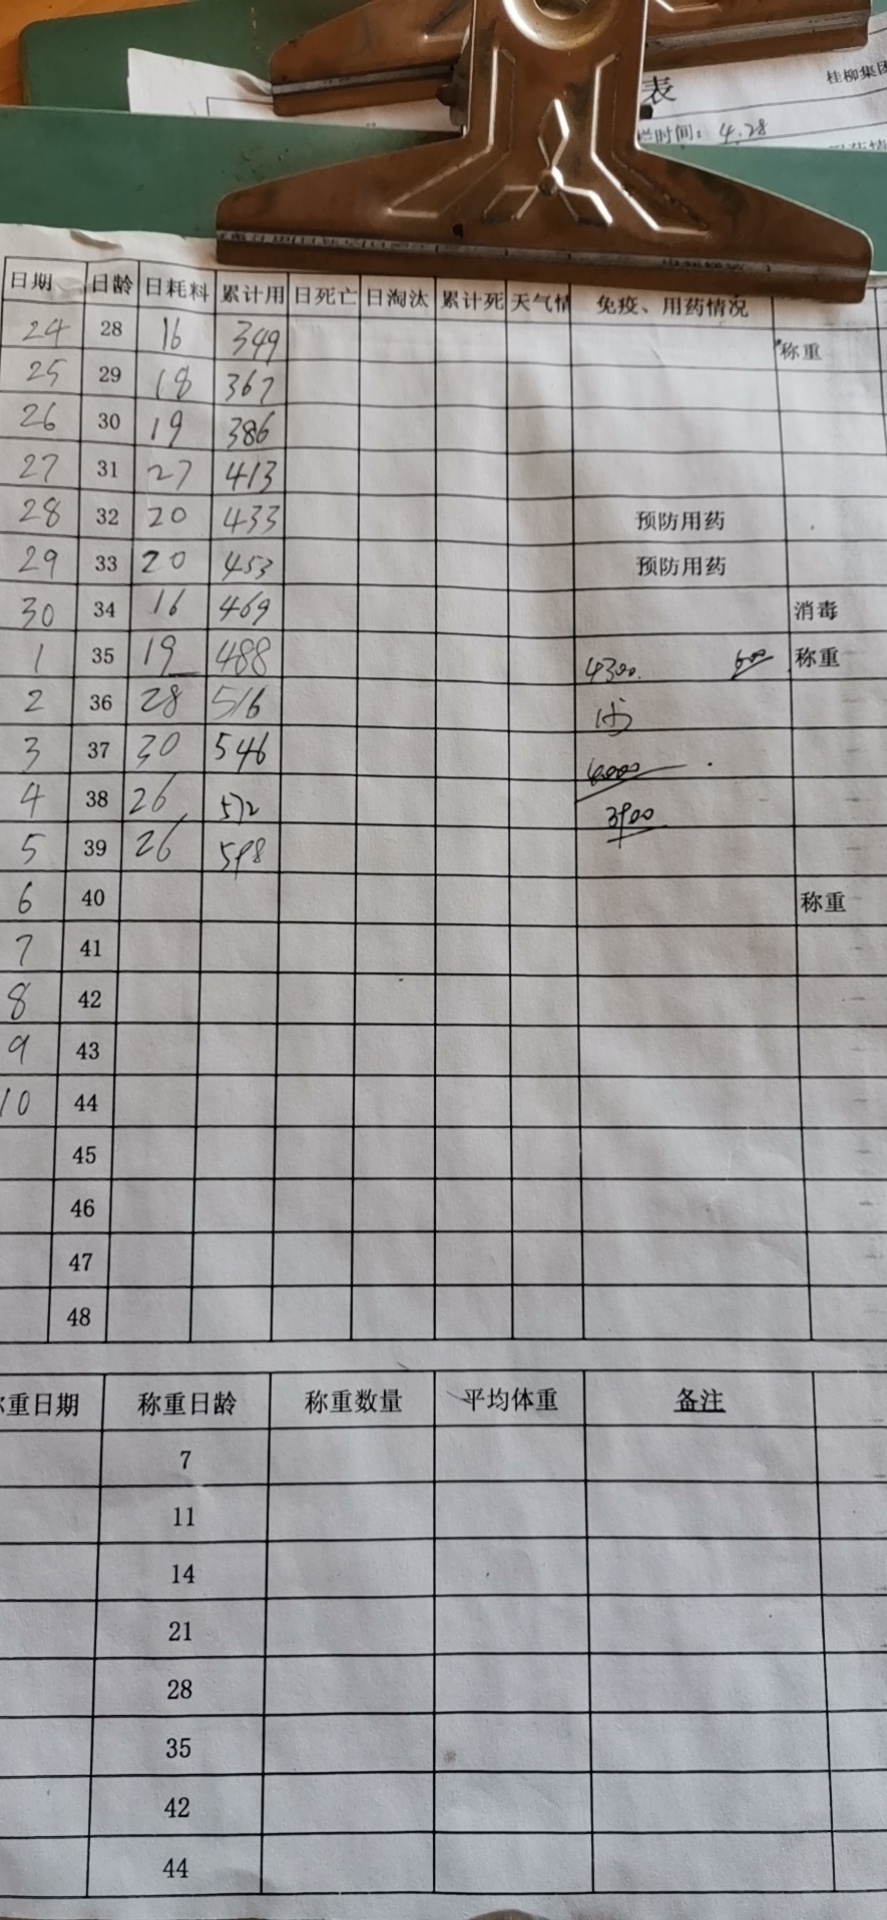 表
桂柳集团
栏时间：4.28
日期 日龄 日耗料 累计用 日死亡 日淘汰 累计死 天气情 免疫、用药情况
24 28 16 349 称重
25 29 18 367
26 30 19 386
27 31 27 413
28 32 20 433 预防用药
29 33 20 453 预防用药
30 34 16 469 消毒
1 35 19 488 4300. 600 称重
2 36 28 516
3 37 30 546
4 38 26 572 3900
5 39 26 598
6 40 称重
7 41
8 42
9 43
10 44
45
46
47
48
称重日期 称重日龄 称重数量 平均体重 备注
7
11
14
21
28
35
42
44